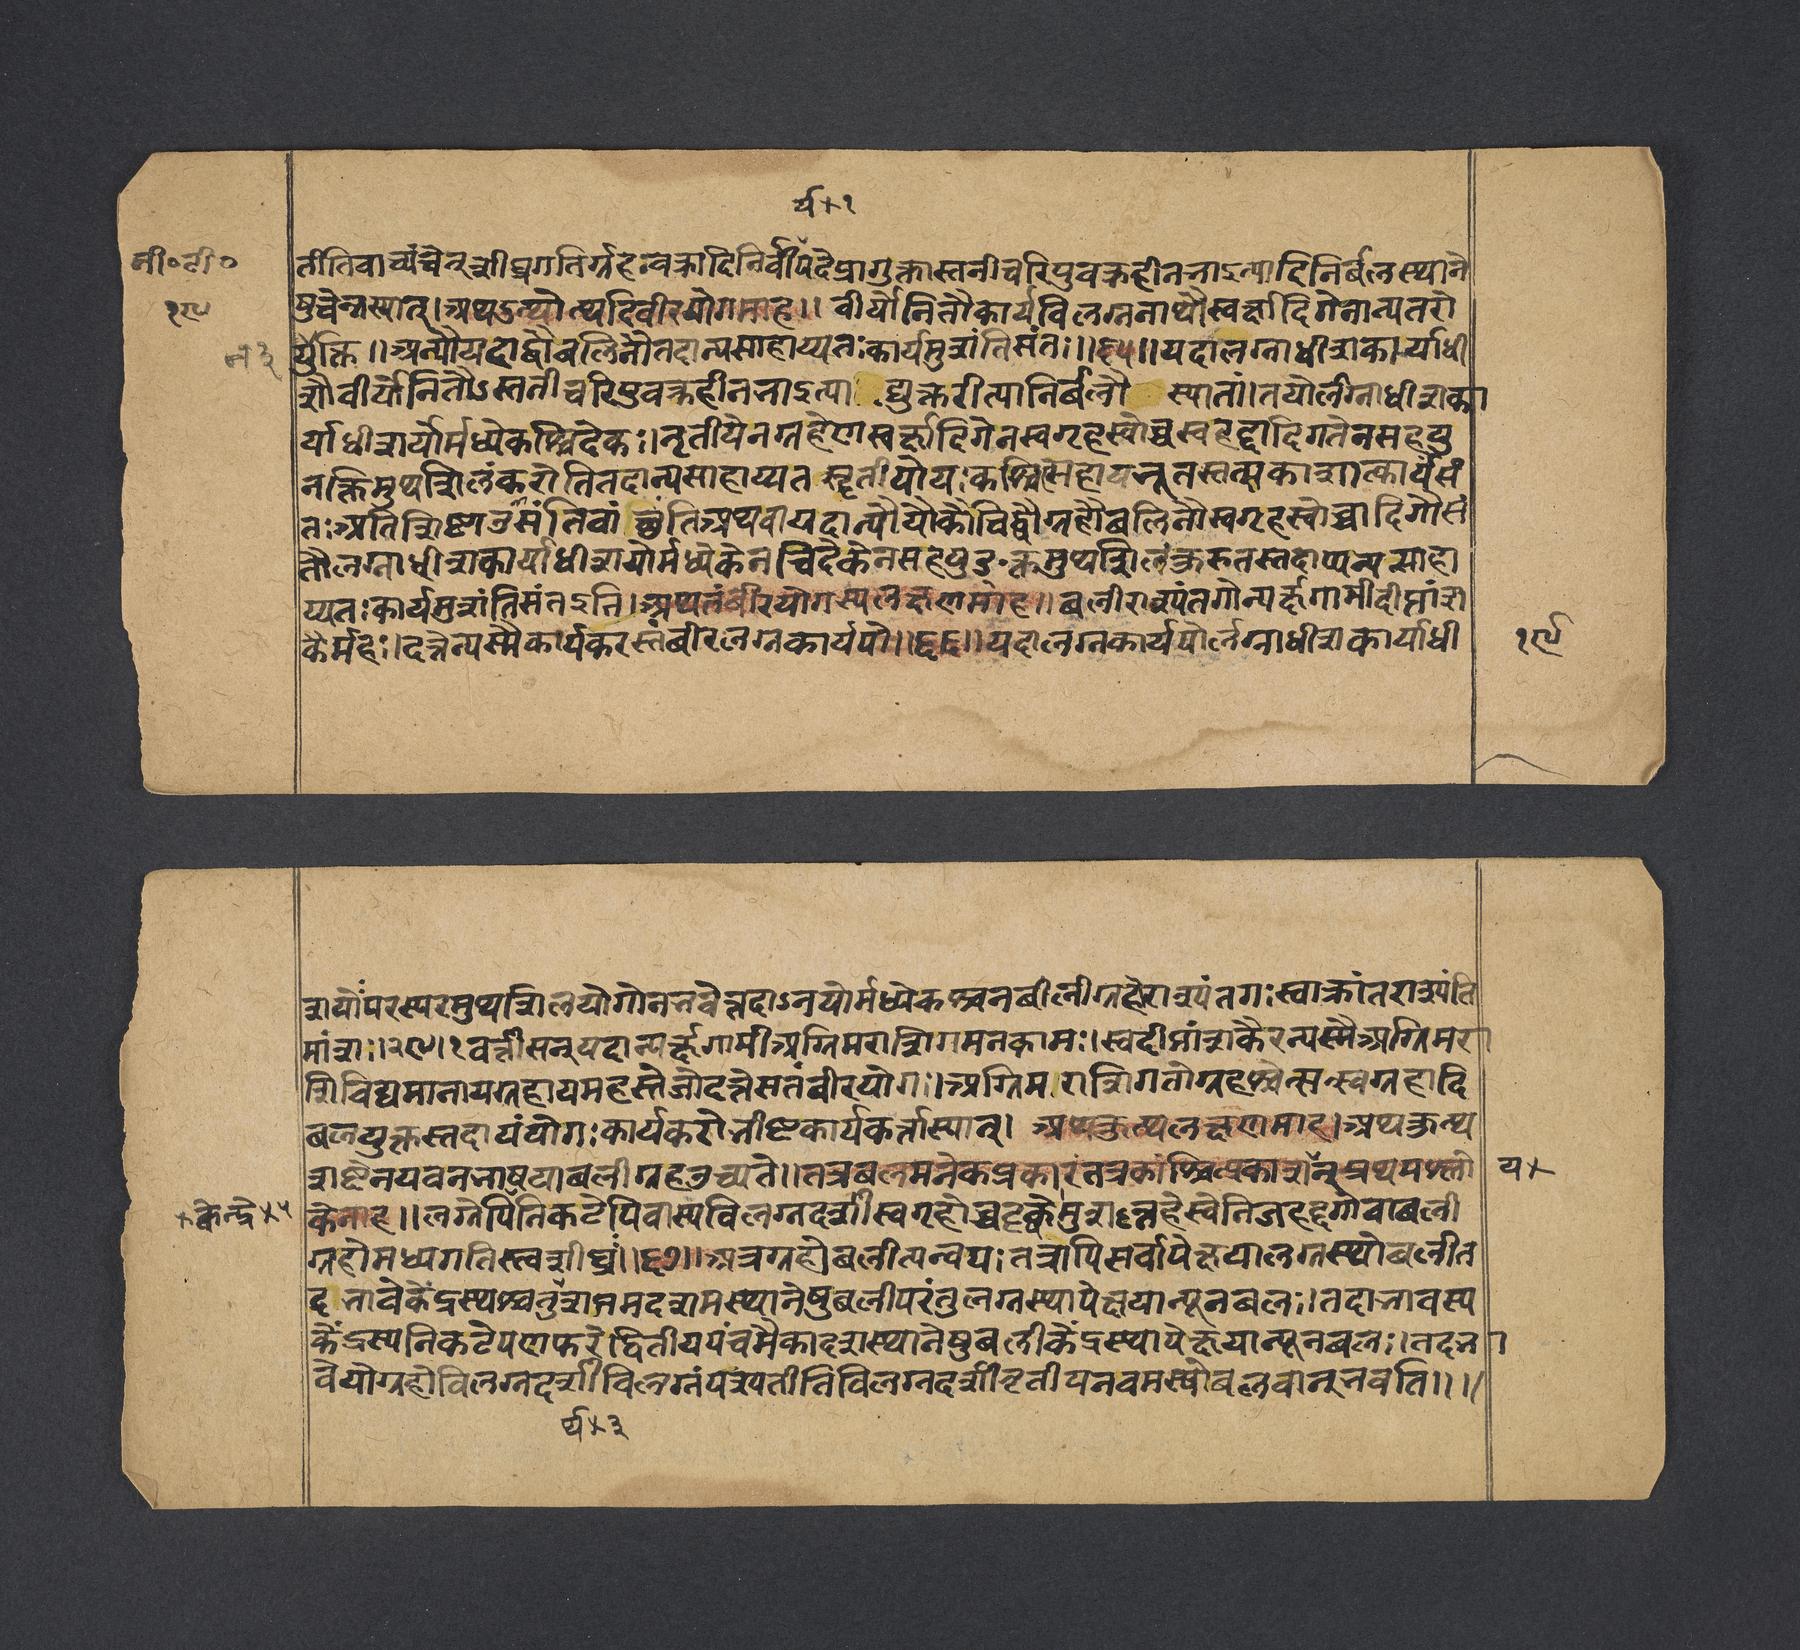 र्य × १
नी॰ टी॰
तीतिवाच्यंचेन्शीघ्रगतिर्ग्रहःवक्रादिनिर्वीर्यपदेप्रागुक्तास्तनीचरिपुवक्रहीनभाऽत्यादिनिर्बलस्थाने
१९
षुचेन्नस्यात्।अथऽन्योत्थदिवीरयोगमाह॥ वीर्यान्वितौकार्यविलग्ननाथौस्वर्क्षादिगेनान्यतरो
र्युक्ति॥अन्यौयदाद्वौबलिनौतदान्यसाहाय्यतःकार्यमुशंतिसंतः॥६५॥यदालग्नाधीशकार्याधी
शौवीर्यान्वितौऽस्तनीचरिपुवक्रहीनभाऽत्याद्युक्तरीत्यानिर्बलौ स्यातां।तयोर्लग्नाधीशका
र्याधीशयोर्मध्येकश्चिदेकः।तृतीयेनग्रहेणस्वर्क्षादिगेनस्वगृहस्वोच्चस्वहद्दादिगतेनसहयु
नक्तिमुथशिलंकरोतितदान्यसाहाय्यतस्तृतीयोयःकश्चित्सहायभूतस्तत्सकाशात्कार्यंसं
तःअतिशिष्टाउसंतिवांछंतिअथवायदान्यौयौकौचिद्वौग्रहौबलिनौस्वगृहस्वोच्चादिगौसं
तौलग्नाधीशकार्याधीशयोर्मध्येकेनचिदेकेनसहयुऽक्तमुथशिलंकुरुतस्तदाप्यन्यसाहा
य्यतःकार्यमुशंतिसंतऽति।अथतंबीरयोगस्यलक्षणमाह॥ बलीराश्यंतगोन्यर्क्षगामीदीप्तांश
कैर्महः।दत्तेन्यस्मैकार्यकरस्तंबीरलग्नकार्ययो॥६६॥यदालग्नकार्ययोर्लग्नाधीशकार्याधी
१९
शयोःपरस्परमुथशिलयोगोनभवेत्तदाऽनयोर्मध्येकश्चनबीलीग्रहोराश्यंतगःस्वाक्रांतराश्यंति
मांशः।२९।१वर्त्तीसन्यदान्यर्क्षगामीअग्रिमराशिगमनकामः।स्वदीप्तांशकैरन्यस्मैअग्रिमरा
शिविद्यमानायग्रहायमहस्तेजोदत्तेसतंबीरयोगः।अग्रिमराशिगतोग्रहश्चेत्सन्स्वग्रहादि
बलयुक्तस्तदायंयोगःकार्यकरोभीष्टकार्यकर्त्तास्यात्। अथकुत्थलक्षणमाह।अथकुत्थ
शब्देनयवनभाषयाबलीग्रहउच्यते॥तत्रबलमनेकप्रकारंतत्रकांश्चित्प्रकारान्प्रथमश्लो
य ×
×केन्द्रे×५
केनाह॥लग्नेपिनिकटेपिवास्यविलग्नदर्शीस्वगृहोच्चदृक्कैसुशाहग्रहेस्वेनिजहद्दगोवाबली
ग्रहोमध्यगतिस्त्वशीघ्रः॥६७॥अत्रग्रहोबलीत्यन्वयःतत्रापिसर्वापेक्षयालग्नस्थोबलीत
दभावेकेंद्रस्थश्चतुर्थसप्तमदशमस्थानेषुबलीपरंतुलग्नस्थापेक्षयान्यूनबलः।तदाभावस्य
केंद्रस्यनिकटेपणफरेद्वितीयपंचमैकादशस्थानेषुबलीकेंद्रस्थापेक्षयान्यूनबलः।तदभा
वेयोग्रहोविलग्नदर्शीविलग्नंपश्यतीतिविलग्नदर्शीतृतीयनवमस्थोबलवान्भवति॥॥
र्य × ३